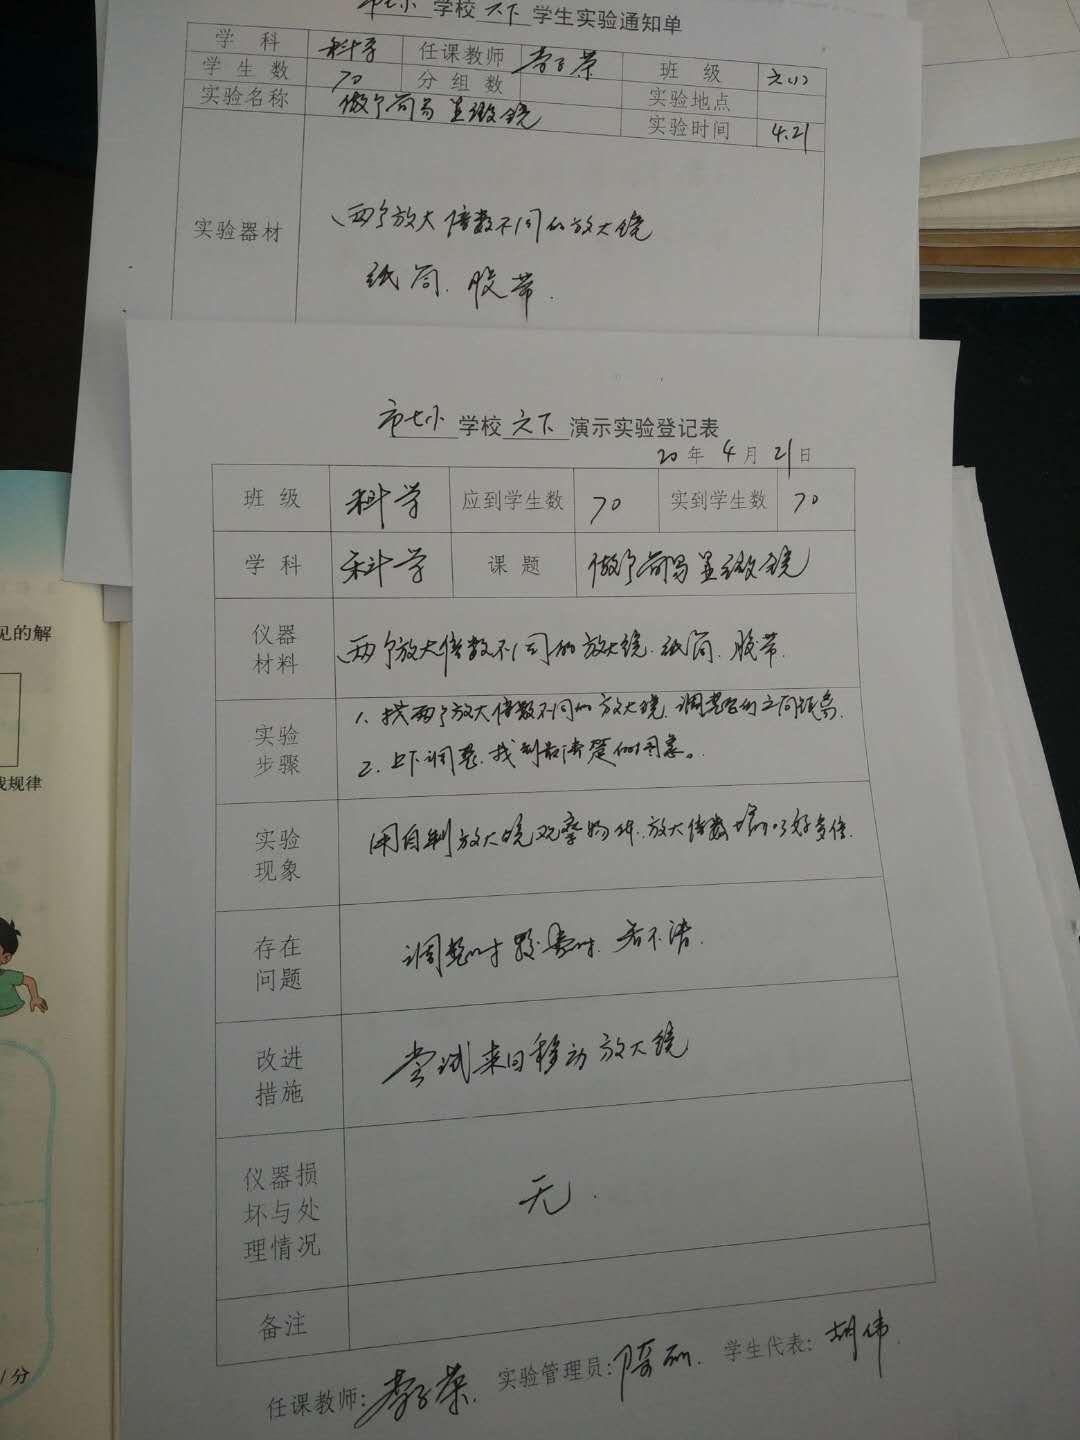 市七小学校六下学生实验通知单
学科 科学 任课教师 班级 六(1)
学生数 70 分组数 实验地点
实验名称 做个简易显微镜 实验时间 4.21
实验器材 两个放大倍数不同的放大镜
纸筒.胶带.
市七小学校六下演示实验登记表
20年4月21日
班级 科学 应到学生数 70 实到学生数 70
学科 科学 课题 做个简易显微镜
仪器材料 两个放大倍数不同的放大镜.纸筒.胶带.
实验步骤 1.找两个放大倍数不同的放大镜.调整它们之间距离.
2.上下调整.找到最清楚的图象。
实验现象 用自制放大镜观察物体.放大倍数增加了好多倍.
存在问题 调整时 看不清.
改进措施 尝试来回移动放大镜
仪器损坏与处理情况 无.
备注
任课教师: 实验管理员: 学生代表:胡伟
见的解
找规律
1分